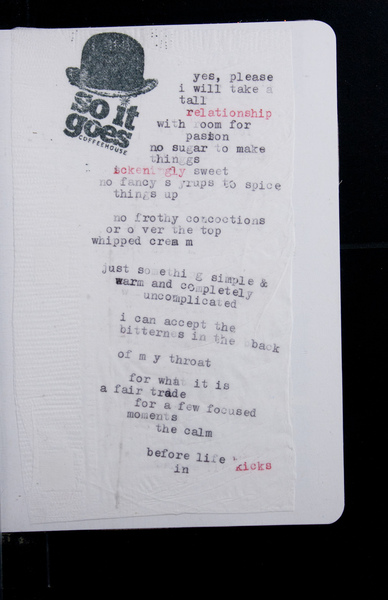 so it
goes
COFFEEHOUSE
yes, please
i will take a
tall
relationship
with room for
passion
no sugar to make
thinggs
ickeningly sweet
no fancy s yrups to spice
things up
no frothy concoctions
or o ver the top
whipped crea m
just somethi g simple &
warm and completely
uncomplicated
i can accept the
bitternes in the back
of m y throat
for what it is
a fair trade
for a few focused
moments
the calm
before life
in kicks